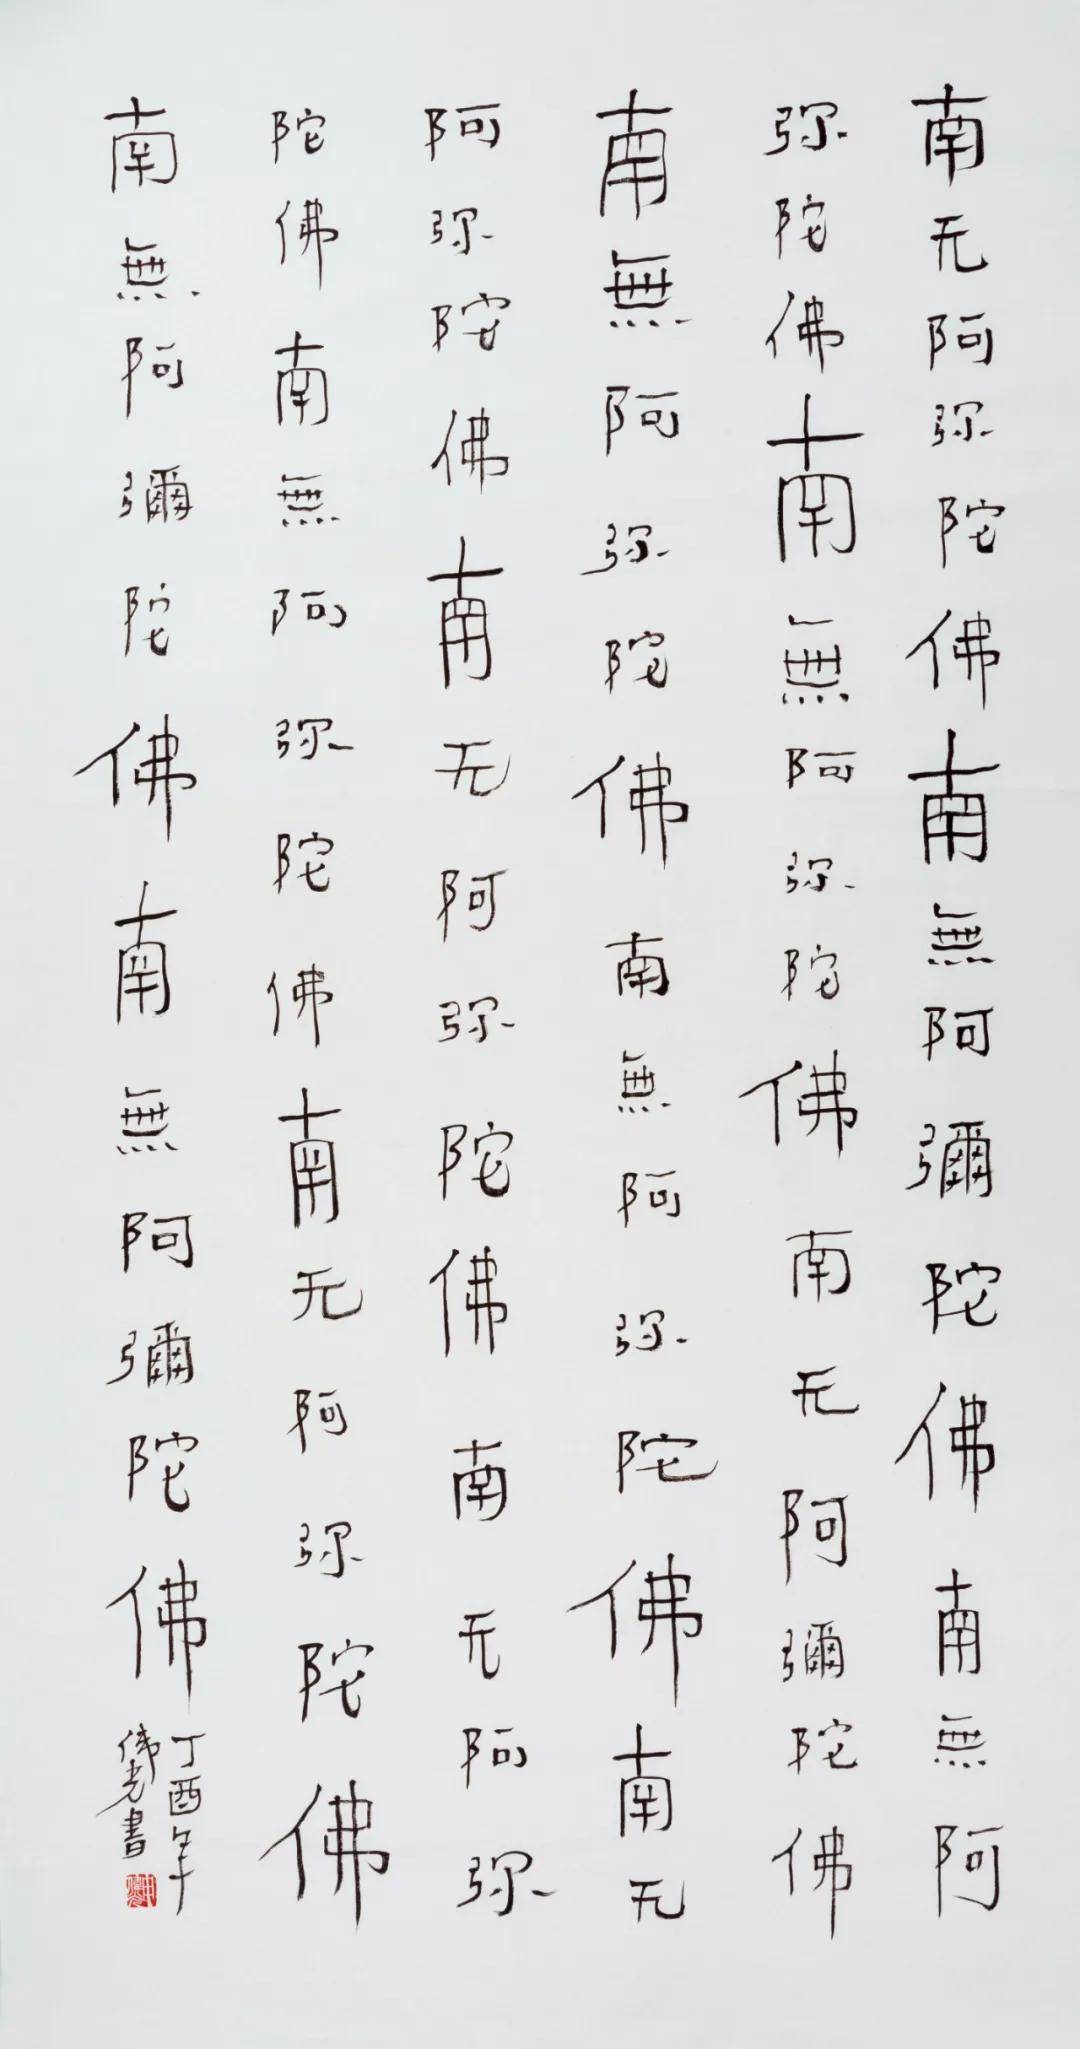 南无阿弥陀佛南無阿彌陀佛南無阿
弥陀佛南無阿弥陀佛南无阿彌陀佛
南無阿弥陀佛南無阿弥陀佛南无
阿弥陀佛南无阿弥陀佛南无阿弥
陀佛南無阿弥陀佛南无阿弥陀佛
南無阿彌陀佛南無阿彌陀佛
丁酉年
伟光書